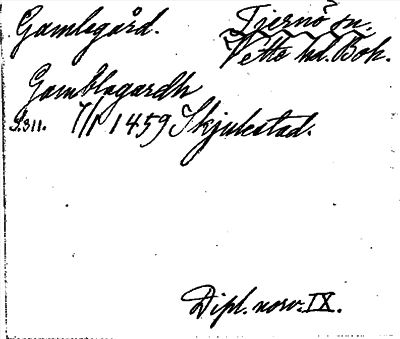 Gamlegård. Tjernö sn.
Vette hd. Boh.
Gamblagardh
S.311. 7/1 1459 Skjulestad.
Dipl. norv. IX.